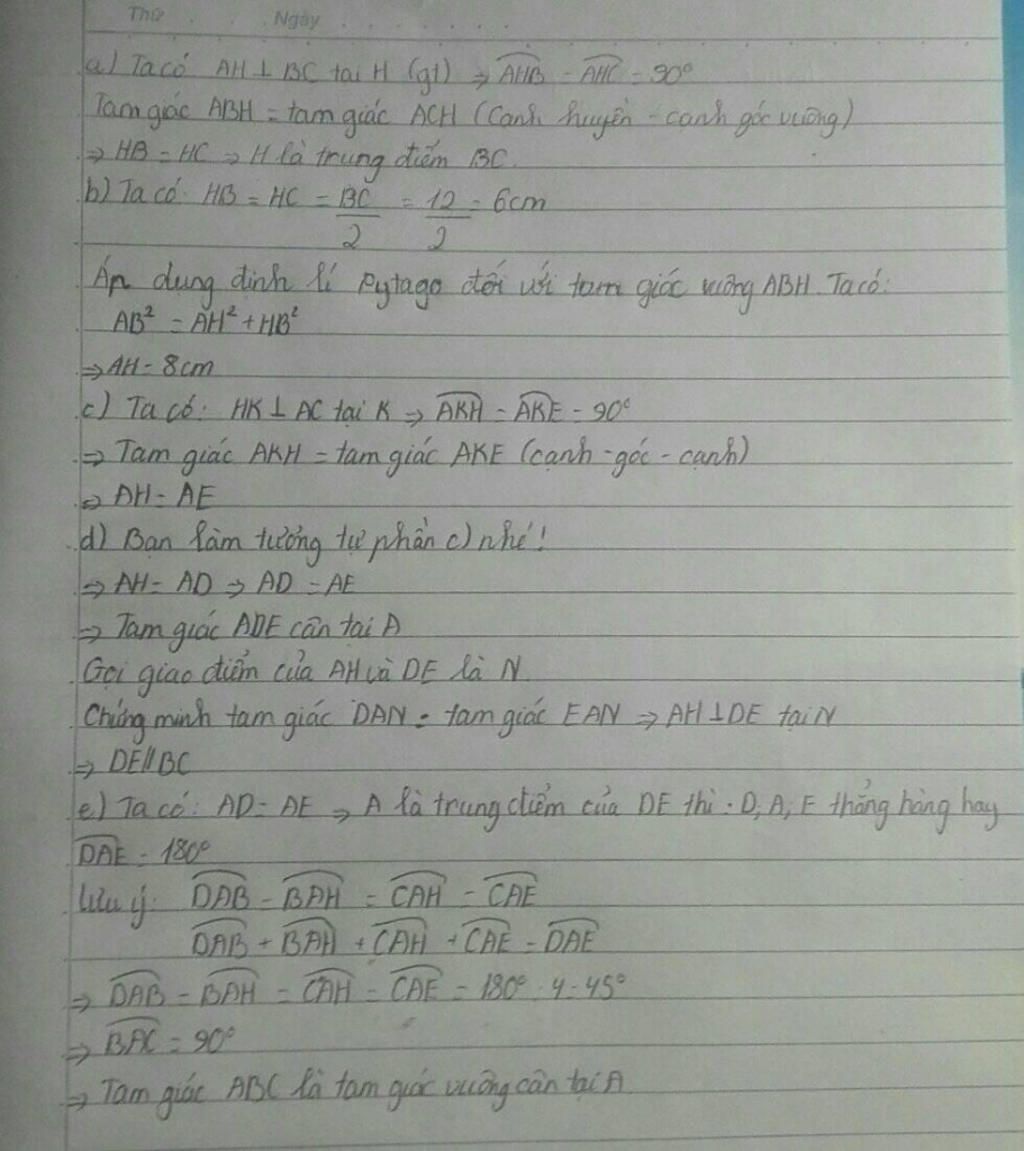 Thứ . . Ngày . . . . . .
a) Ta có AH ⊥ BC tại H (gt) ⇒ AHB = AHC = 90°
Tam giác ABH = tam giác ACH (Cạnh huyền - cạnh góc vuông)
⇒ HB = HC ⇒ H là trung điểm BC.
b) Ta có: HB = HC = BC/2 = 12/2 = 6cm
Áp dụng định lí Pytago đối với tam giác vuông ABH. Ta có:
AB² = AH² + HB²
⇒ AH = 8cm
c) Ta có: HK ⊥ AC tại K ⇒ AKH = AKE = 90°
⇒ Tam giác AKH = tam giác AKE (cạnh - góc - cạnh)
⇒ AH = AE
d) Bạn làm tương tự phần c) nhé!
⇒ AH = AD ⇒ AD = AE
⇒ Tam giác ADE cân tại A
Gọi giao điểm của AH và DE là N
Chứng minh tam giác DAN = tam giác EAN ⇒ AH ⊥ DE tại N
⇒ DE // BC
e) Ta có: AD = AE ⇒ A là trung điểm của DE thì: D, A, E thẳng hàng hay
DAE = 180°
Lưu ý: DAB = BAH = CAH = CAE
DAB + BAH + CAH + CAE = DAE
⇒ DAB = BAH = CAH = CAE = 180° : 4 = 45°
⇒ BAC = 90°
⇒ Tam giác ABC là tam giác vuông cân tại A